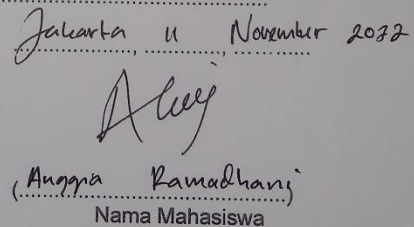 Jakarta, 11 November 2022
(Anggia Ramadhani)
Nama Mahasiswa